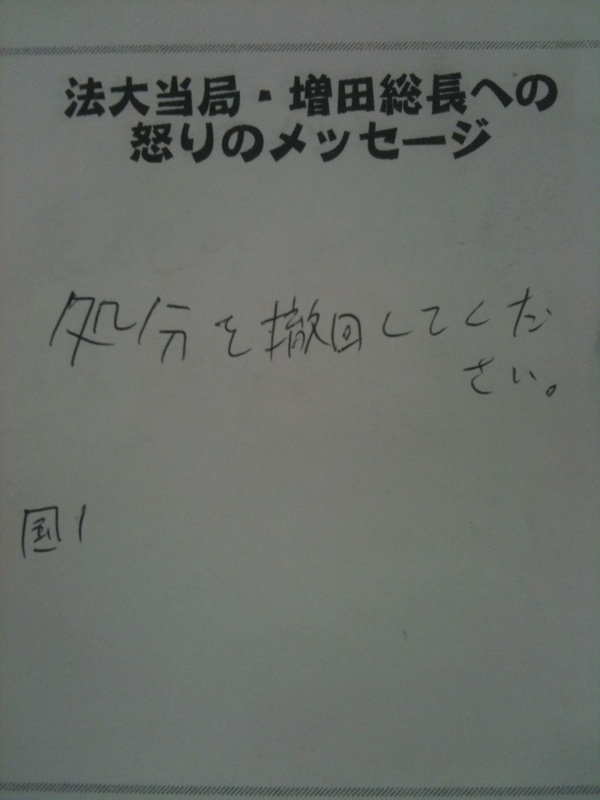 法大当局・増田総長への
怒りのメッセージ
処分を撤回してくだ
さい。
国1